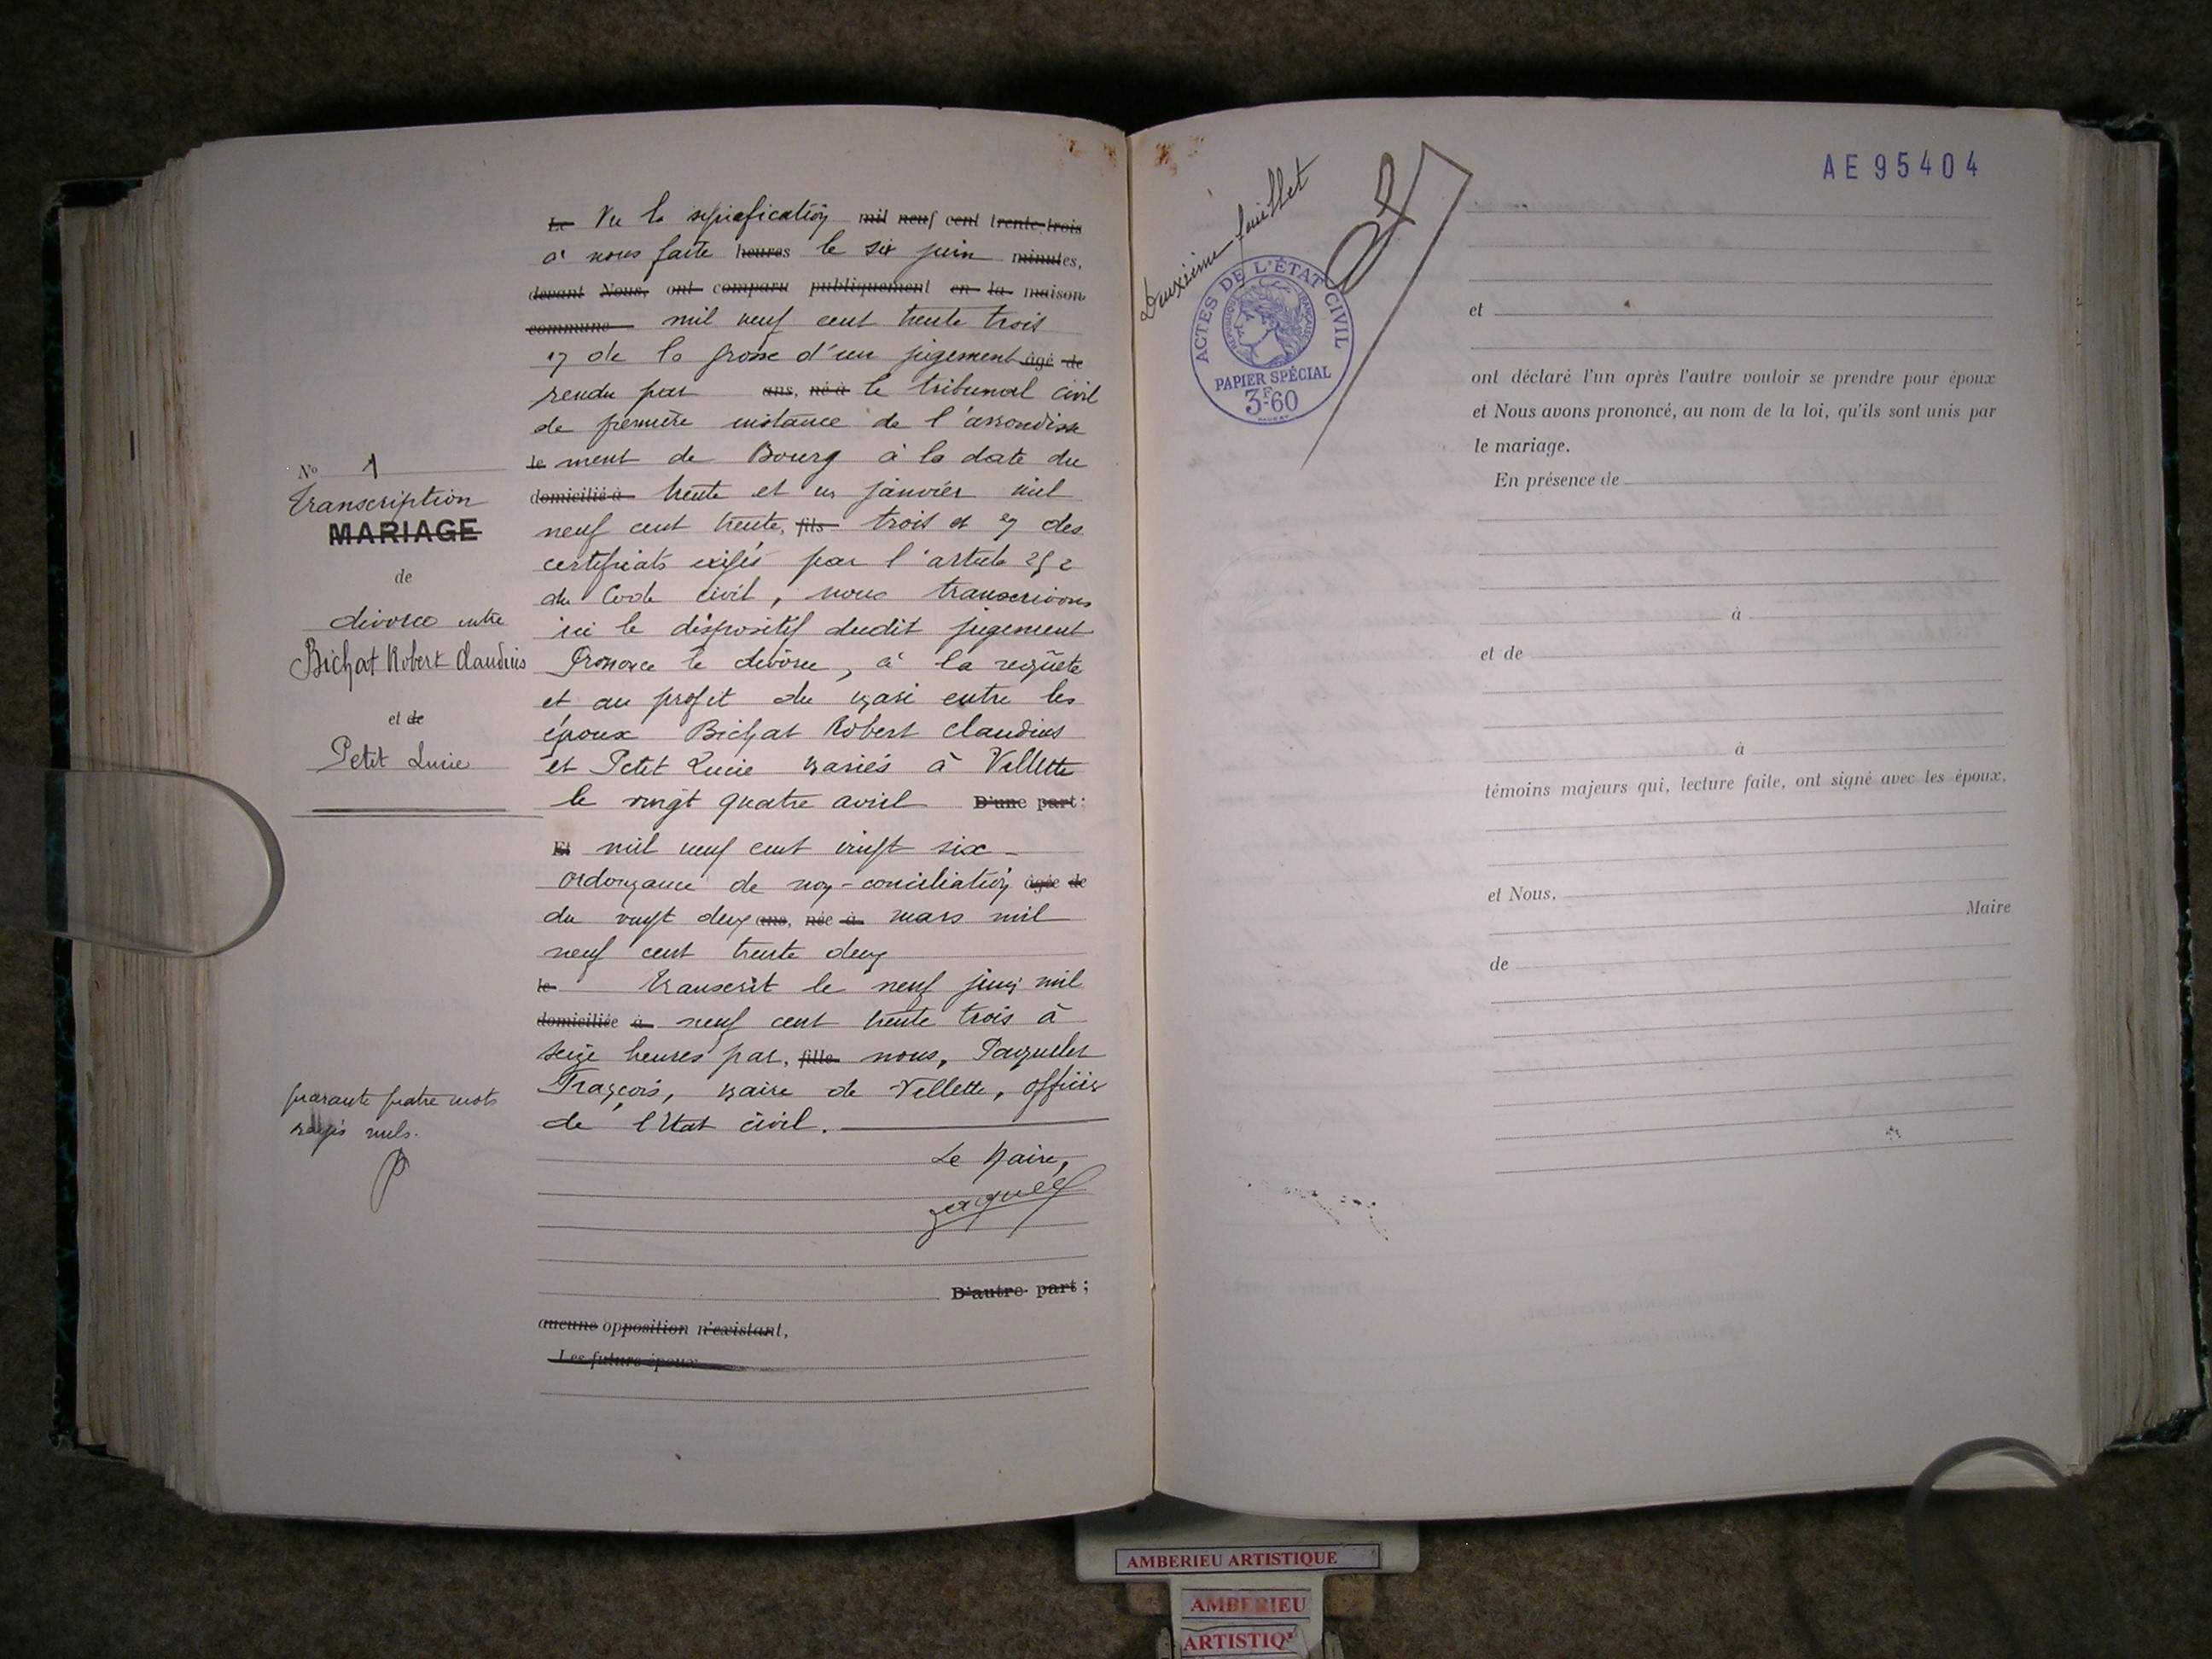 Le Vu la signification mil neuf cent trente-trois
à nous faite heures le six juin minutes,
devant Nous, ont comparu publiquement en la maison
commune mil neuf cent trente trois
de la grosse d'un jugement âgé de
rendu par ans, né à le tribunal civil
de première instance de l'arrondisse
le ment de Bourg à la date du
domicilié à trente et un janvier mil
neuf cent trente, fils trois et en des
certificats exigés par l'article 252
du Code civil, nous transcrivons
ici le dispositif dudit jugement
Prononce le divorce, à la requête
et au profit du mari entre les
époux Bichat Robert Claudius
et Petit Lucie mariés à Villette
le vingt quatre avril D'une part:
Et mil neuf cent vingt six -
ordonnance de non-conciliation âgée de
du vingt deux ans, née à mars mil
neuf cent trente deux
le transcrit le neuf juin mil
domiciliée à neuf cent trente trois à
seize heures par, fille nous,
François, maire de Villette, officier
de l'Etat civil.
Le Maire,
D'autre part;
aucune opposition n'existant,
Les futurs époux
No 1
transcription
MARIAGE
de
divorce entre
Bichat Robert Claudius
et de
Petit Lucie
quarante quatre mots
rayés nuls.
Deuxième feuillet
ACTES DE L'ÉTAT CIVIL
RÉPUBLIQUE FRANÇAISE
PAPIER SPÉCIAL
3F60
AE95404
et
ont déclaré l'un après l'autre vouloir se prendre pour époux
et Nous avons prononcé, au nom de la loi, qu'ils sont unis par
le mariage.
En présence de
à
et de
à
témoins majeurs qui, lecture faite, ont signé avec les époux,
et Nous,
Maire
de
AMBERIEU ARTISTIQUE
AMBERIEU
ARTISTIQ